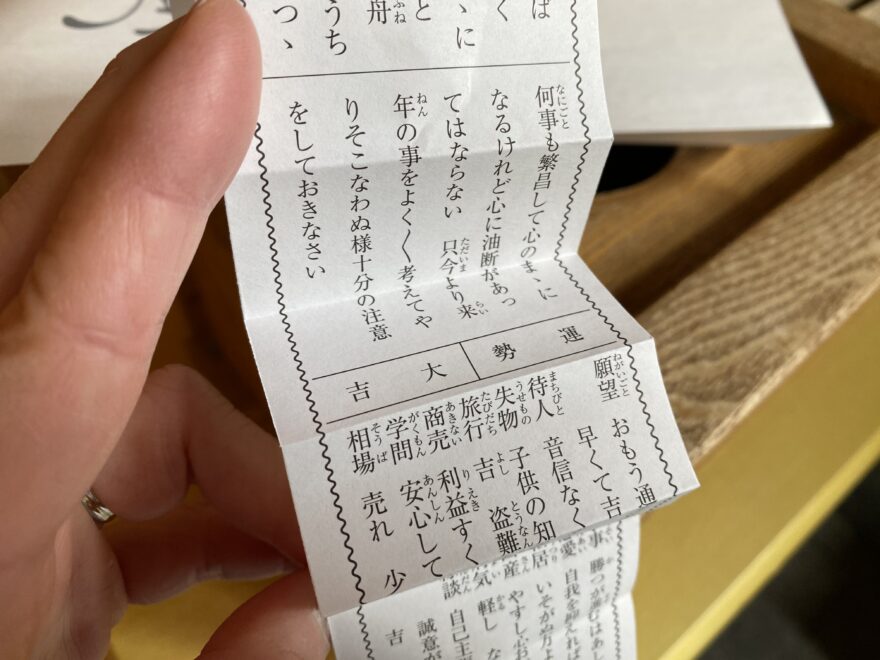 ば
く
ヽに
と
舟
うち
つヽ
何事も繁昌して心のまヽに
なるけれど心に油断があっ
てはならない　只今より来
年の事をよく〱考えてや
りそこなわぬ様十分の注意
をしておきなさい
運勢
大吉
願望　おもう通
早くて吉
待人　音信なく
失物　子供の知
旅行　吉　盗難
商売　利益すく
学問　安心して
相場　売れ　少
事　勝つが
愛　自我を抑えれば
居　いそが
産　やすし心お
気　軽し　な
談　自己主
誠意が
吉